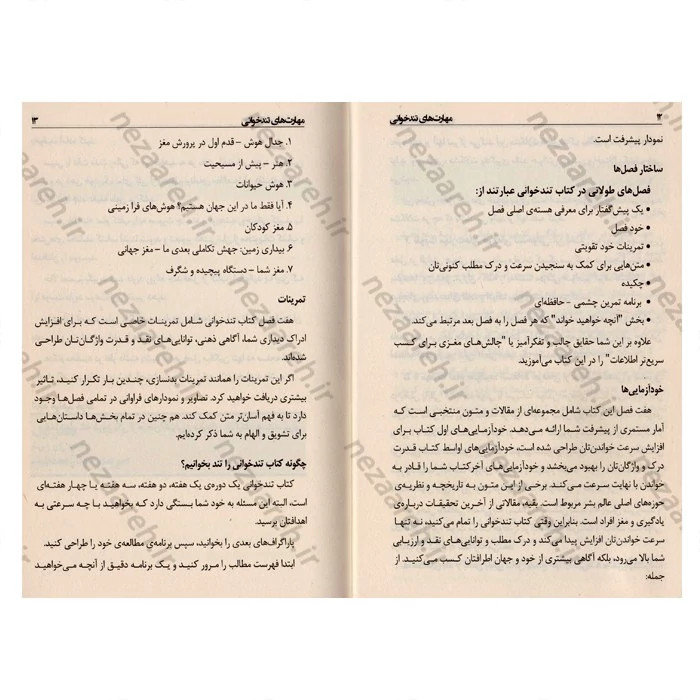 ۱۲ مهارت‌های تندخوانی
نمودار پیشرفت است.
ساختار فصل‌ها
فصل‌های طولانی در کتاب تندخوانی عبارتند از:
• یک پیش‌گفتار برای معرفی هسته‌ی اصلی فصل
• خود فصل
• تمرینات خود تقویتی
• متن‌هایی برای کمک به سنجیدن سرعت و درک مطلب کنونی‌تان
• چکیده
• برنامه تمرین چشمی - حافظه‌ای
• بخش "آنچه خواهید خواند" که هر فصل را به فصل بعد مرتبط می‌کند.
علاوه بر این شما حقایق جالب و تفکرآمیز یا "چالش‌های مغزی برای کسب
سریع‌تر اطلاعات" را در این کتاب می‌آموزید.
خودآزمایی‌ها
هفت فصل این کتاب شامل مجموعه‌ای از مقالات و متون منتخبی است که به
آمار مستمری از پیشرفت شما ارائه می‌دهد. خودآزمایی‌های اول کتاب برای
افزایش سرعت خواندن‌تان طراحی شده است، خودآزمایی‌های اواسط کتاب قدرت
درک و واژگان‌تان را بهبود می‌بخشد و خودآزمایی‌های آخرکتاب شما را قادر به
خواندن با نهایت سرعت می‌کند. برخی از این متون به تاریخچه و نظریه‌ی
حوزه‌های اصلی عالم بشر مربوط است بقیه، مقالاتی از آخرین تحقیقات درباره‌ی
یادگیری و مغز افراد است. بنابراین وقتی کتاب تندخوانی را تمام می‌کنید، نه تنها
سرعت خواندن‌تان افزایش پیدا می‌کند و درک مطلب و توانایی‌های نقد و ارزیابی
شما بالا می‌رود، بلکه آگاهی بیشتری از خود و جهان اطرافتان کسب می‌کنید. از
جمله:
مهارت‌های تندخوانی ۱۳
۱. جدال هوش – قدم اول در پرورش مغز
۲. هنر – پیش از مسیحیت
۳. هوش حیوانات
۴. آیا فقط ما در این جهان هستیم؟ هوش‌های فرا زمینی
۵. مغز کودکان
۶. بیداری زمین: جهش تکاملی بعدی ما – مغز جهانی
۷. مغز شما – دستگاه پیچیده و شگرف
تمرینات
هفت فصل کتاب تندخوانی شامل تمرینات خاصی است که برای افزایش
ادراک دیداری شما، آگاهی ذهنی، توانایی‌های نقد و قدرت واژگان‌تان طراحی
شده‌اند.
اگر این تمرینات را همانند تمرینات بدنسازی، چندین بار تکرار کنید، تاثیر
بیشتری دریافت خواهید کرد. تصاویر و نمودارهای فراوانی در تمامی فصل‌ها وجود
دارد تا به فهم آسان‌تر متن کمک کند. هم چنین در تمام بخش‌ها داستان‌هایی
برای تشویق و الهام به شما ذکر کرده‌ایم.
چگونه کتاب تندخوانی را تند بخوانیم؟
کتاب تندخوانی یک دوره‌ی یک هفته، دو هفته، سه هفته یا چهار هفته‌ای
است، البته این مسئله به خود شما بستگی دارد که بخواهید با چه سرعتی به
اهدافتان برسید.
پاراگراف‌های بعدی را بخوانید، سپس برنامه‌ی مطالعه‌ی خود را طراحی کنید.
ابتدا فهرست مطالب را مرور کنید و یک برنامه دقیق از آنچه می‌خواهید
nezaareh.ir
nezaareh.ir
nezaareh.ir
nezaareh.ir
nezaareh.ir
nezaareh.ir